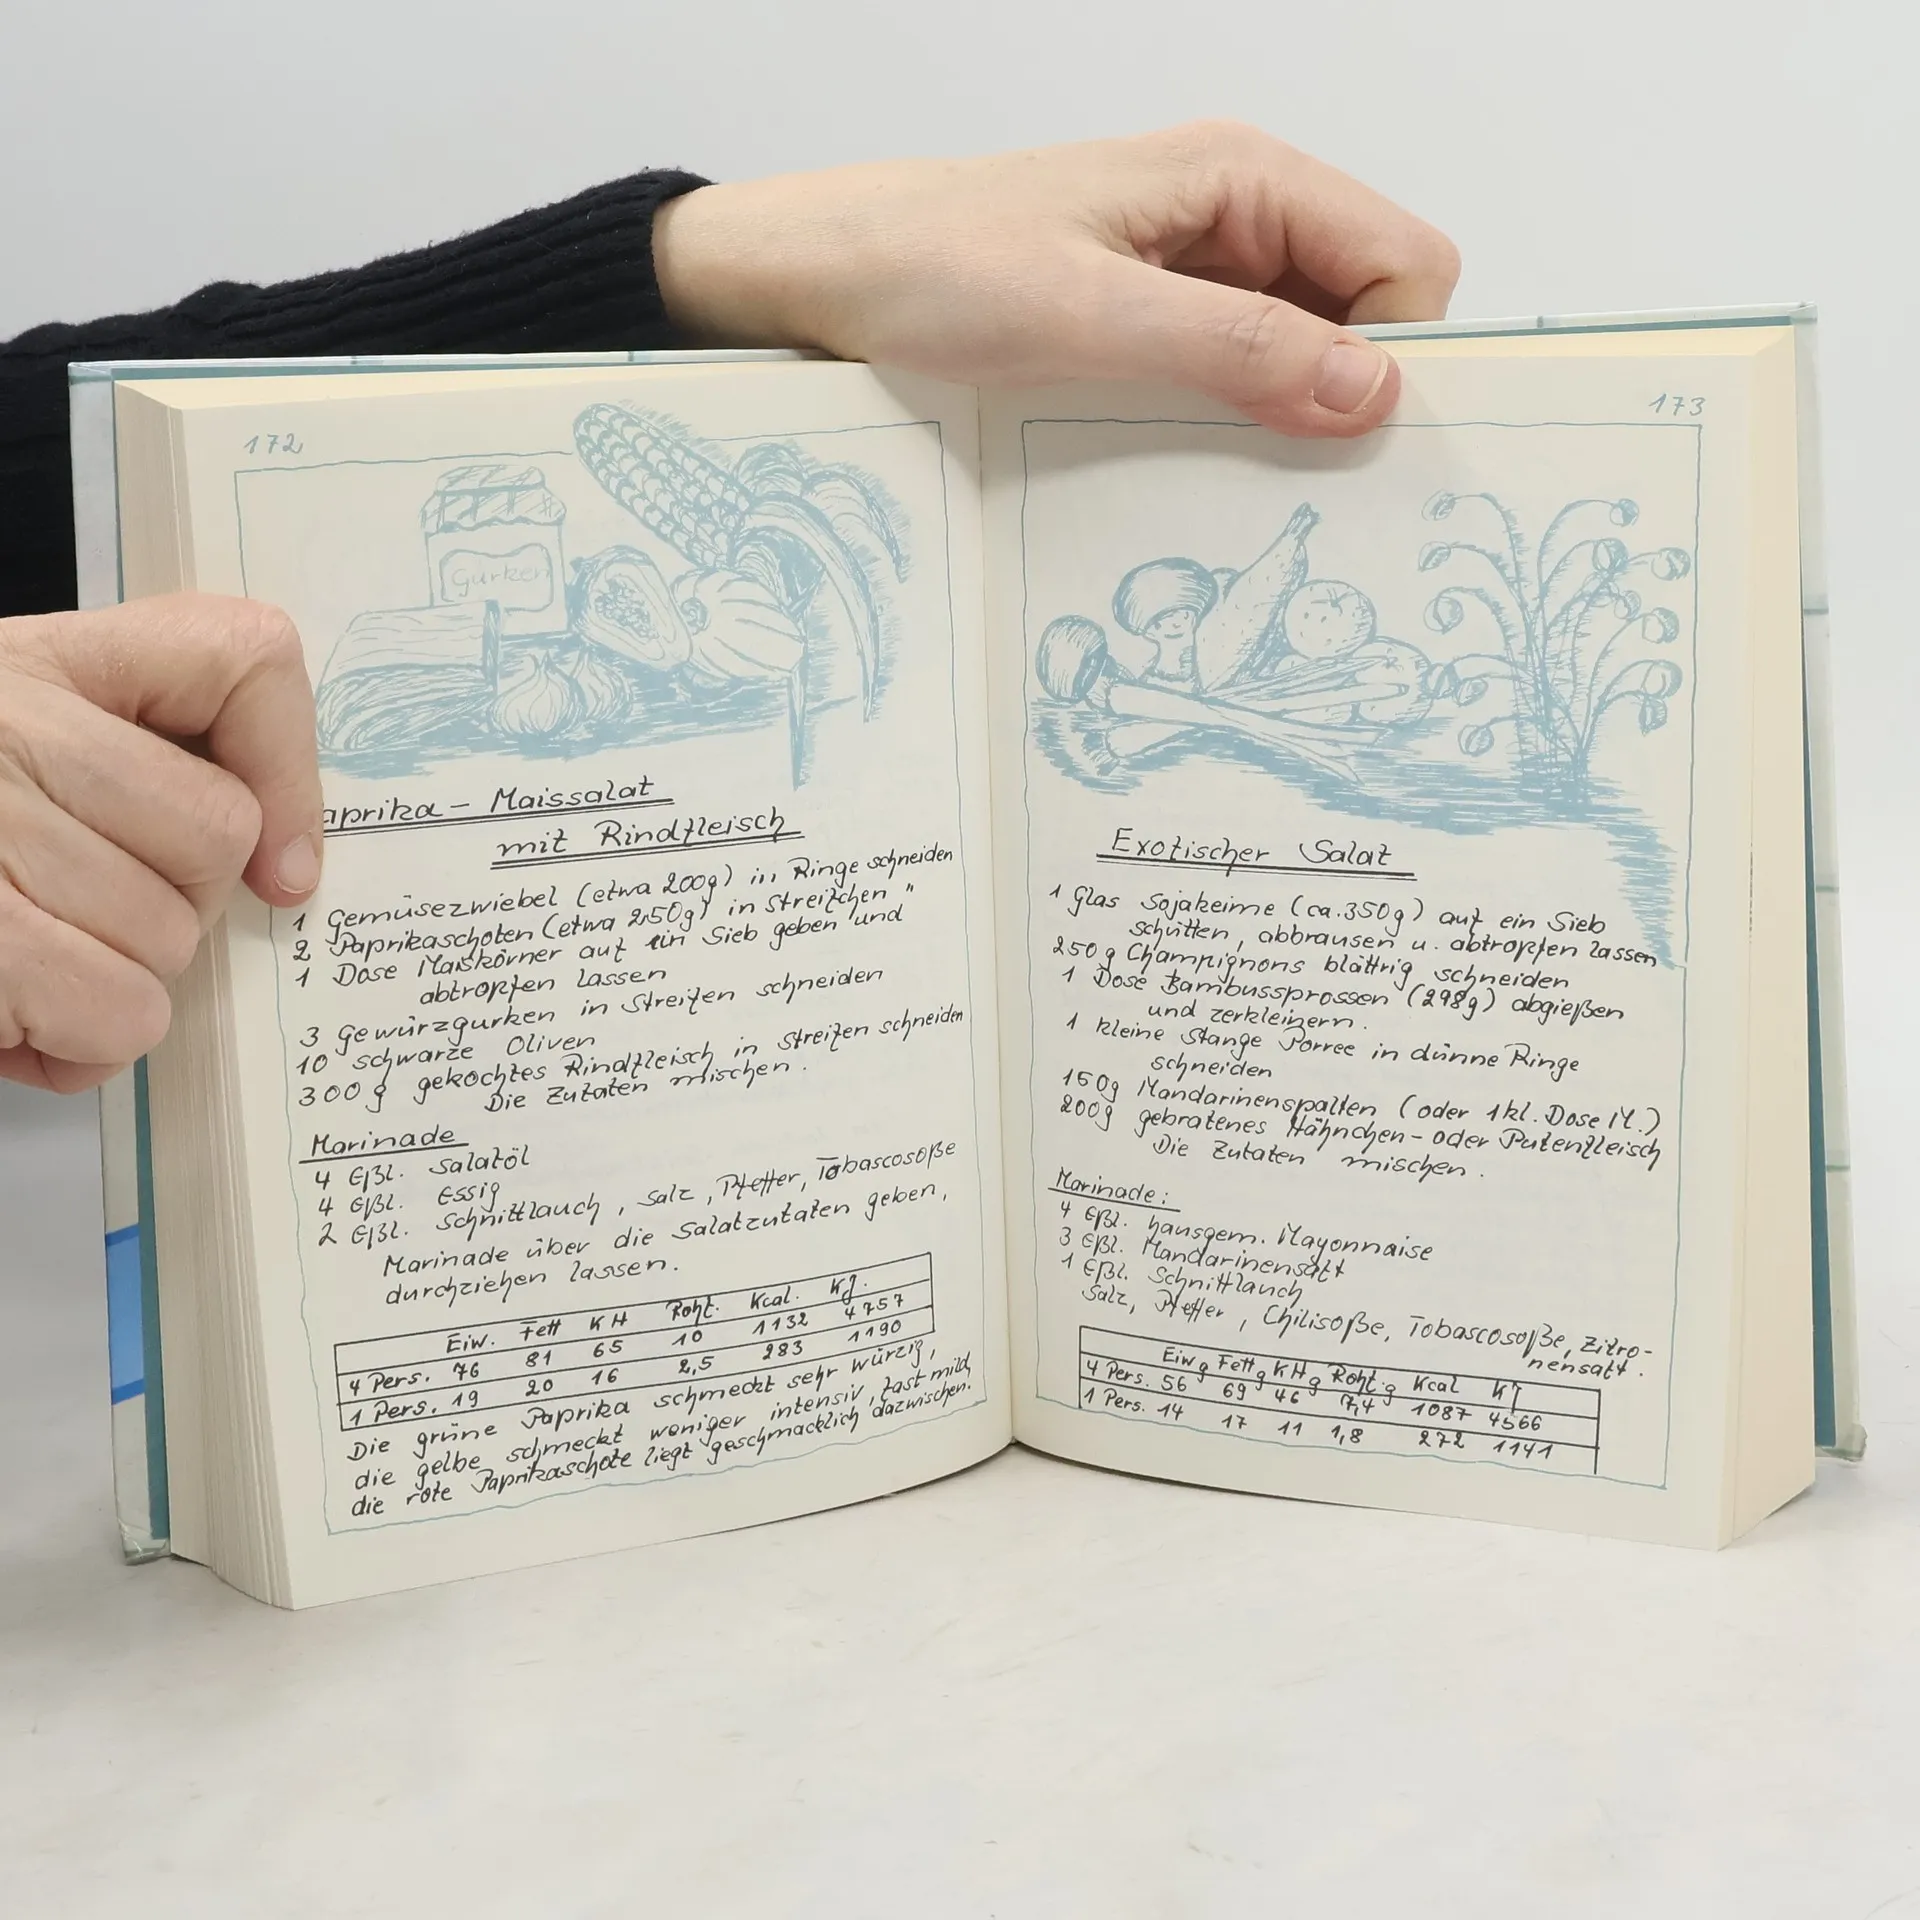 172
Gurken
aprika - Maissalat
mit Rindfleisch
1 Gemüsezwiebel (etwa 200g) in Ringe schneiden
2 Paprikaschoten (etwa 250g) in Streifchen "
1 Dose Maiskörner auf ein Sieb geben und
abtropfen lassen
3 Gewürzgurken in Streifen schneiden
10 schwarze Oliven
300 g gekochtes Rindfleisch in Streifen schneiden
Die Zutaten mischen.
Marinade
4 Eßl. Salatöl
4 Eßl. Essig
2 Eßl. Schnittlauch, Salz, Pfeffer, Tabascosoße
Marinade über die Salatzutaten geben,
durchziehen lassen.
Eiw. Fett KH Rohf. Kcal. KJ.
4 Pers. 76 81 65 10 1132 4757
1 Pers. 19 20 16 2,5 283 1190
Die grüne Paprika schmeckt sehr würzig,
die gelbe schmeckt weniger intensiv, fast mild,
die rote Paprikaschote liegt geschmacklich dazwischen.
173
Exotischer Salat
1 Glas Sojakeime (ca. 350g) auf ein Sieb
schütten, abbrausen u. abtropfen lassen
250 g Champignons blättrig schneiden
1 Dose Bambussprossen (298g) abgießen
und zerkleinern.
1 kleine Stange Porree in dünne Ringe
schneiden
150g Mandarinenspalten (oder 1 kl. Dose M.)
200g gebratenes Hähnchen- oder Putenfleisch
Die Zutaten mischen.
Marinade:
4 Eßl. hausgem. Mayonnaise
3 Eßl. Mandarinensaft
1 Eßl. Schnittlauch
Salz, Pfeffer, Chilisoße, Tobascosoße, Zitro-
nensaft.
Eiw g Fett g KH g Rohf. g Kcal KJ
4 Pers. 56 69 46 7,4 1087 4566
1 Pers. 14 17 11 1,8 272 1141